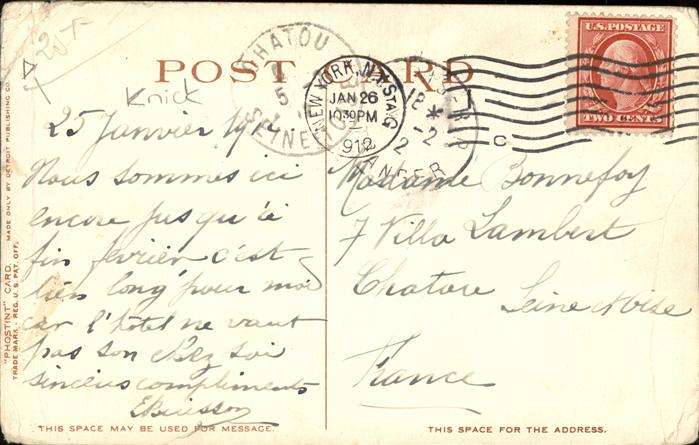 POST CARD
U.S. POSTAGE
TWO CENTS
CHATOU
SEINE
NEW YORK, N.Y. STA G
JAN 26
10 30 PM
1912
Knick
25 Janvier 19
Nous sommes ici
encore jusqu'à
fin fevrier c'est
bien long pour moi
car l'hôtel ne vaut
pas son chez soi
sincères compliments
Madame Bonnefoy
7 Villa Lambert
Chatou
Seine & Oise
France
"PHOSTINT" CARD. MADE ONLY BY DETROIT PUBLISHING CO.
TRADE MARK - REG. U.S. PAT. OFF.
THIS SPACE MAY BE USED FOR MESSAGE.
THIS SPACE FOR THE ADDRESS.